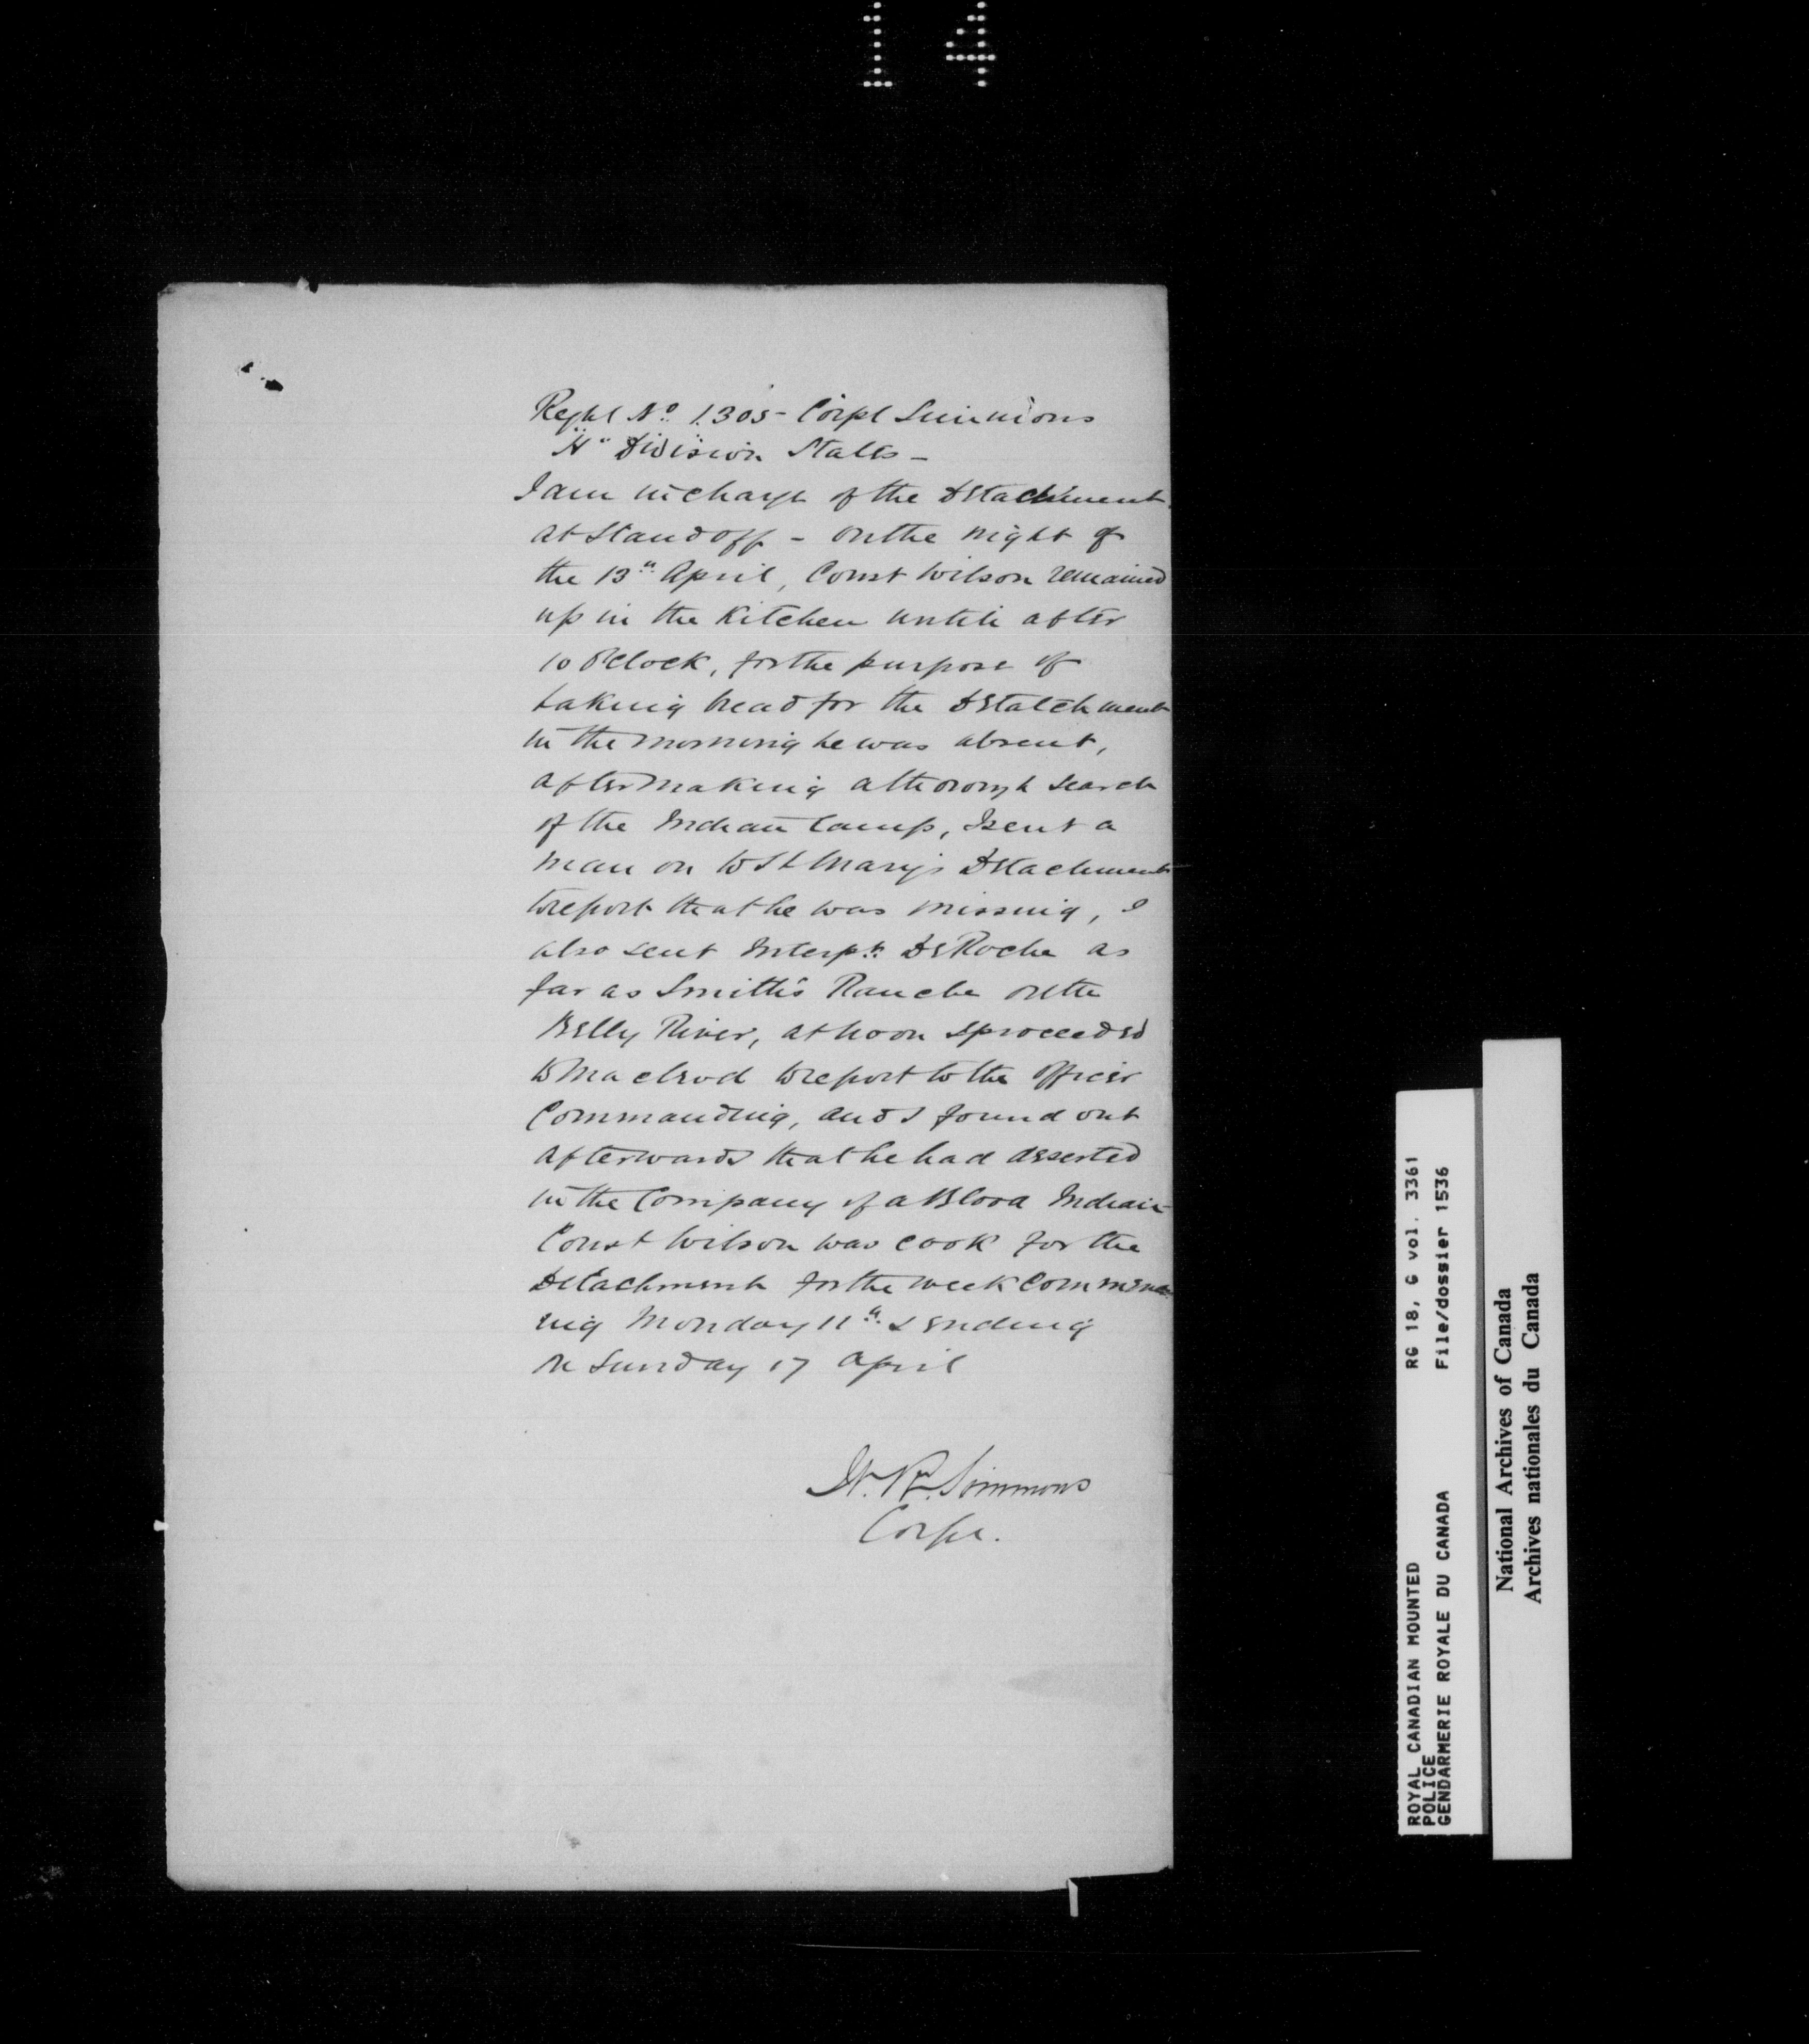 14
Regtl No. 1305 - Corpl Simmons
"H" Division States -
I am in charge of the Detachment
at Standoff - on the night of
the 13th April, Const Wilson remained
up in the Kitchen until after
10 O'Clock, for the purpose of
baking bread for the Detatchment
in the morning he was absent,
after making a thorough search
of the Indian Camp, I sent a
man on to St Mary's Detachment
to report that he was missing, I
also sent Interptr DeRoche as
far as Smith's Ranche on the
Belly River, at noon I proceeded
to Macleod to report to the Officer
Commanding, and I found out
afterwards that he had deserted
in the Company of a Blood Indian
Const Wilson was cook for the
Detachment for the week Commenc
ing Monday 11th & ending
on Sunday 17 April
Simmons
Corpl.
ROYAL CANADIAN MOUNTED RG 18, G vol. 3361
POLICE File/dossier 1536
GENDARMERIE ROYALE DU CANADA
National Archives of Canada
Archives nationales du Canada